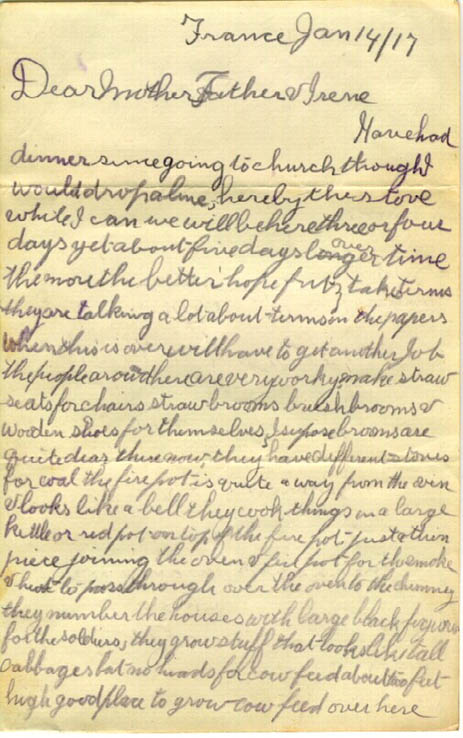 France Jan 14/17
Dear Mother Father & Irene
Have had
dinner since going to church thought
would drop a line, here by the stove
while I can we will be here three or four
days yet about five days longer over time
the more the better, hope fritz takes terms
they are talking a lot about terms in the papers
when this is over will have to get another Job
the people around here are very worky make straw
seats for chairs straw brooms brush brooms &
wooden shoes for themselves, I supose brooms are
quite dear there now they have different stoves
for coal the fire pot is quite a way from the oven
& looks like a bell they cook things in a large
kettle or red pot on top of the fire pot just a thin
piece joining the oven & fire pot for the smoke
& heat to pass through over the oven to the chimney
they number the houses with large black figures
for the soldiers, they grow stuff that looks like tall
cabbages but no heads for cow feed about two feet
high good place to grow cow feed over here